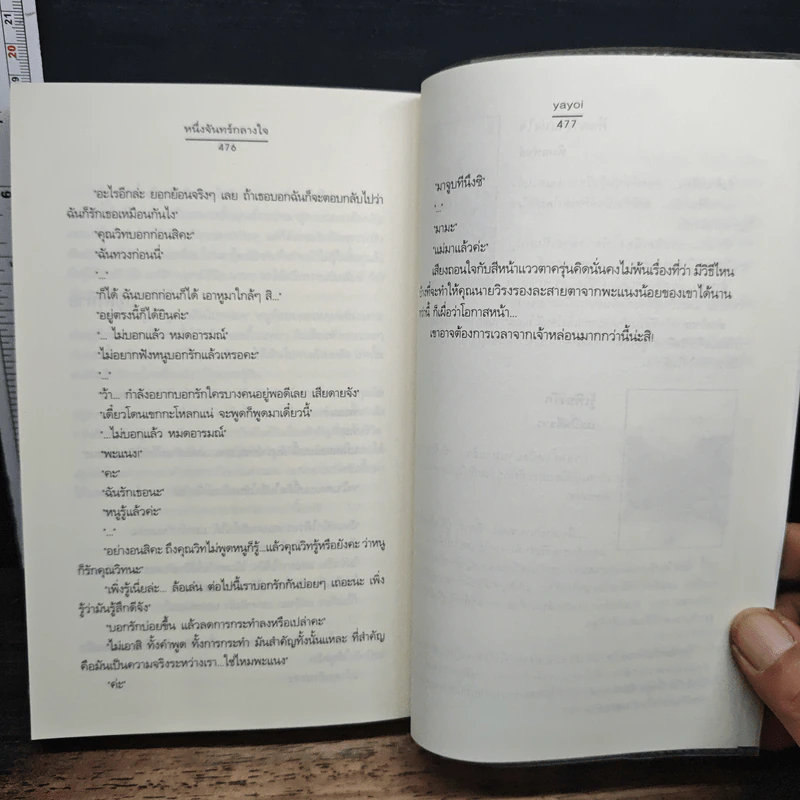 หนึ่งจันทร์กลางใจ
476
"อะไรอีกล่ะ ยอกย้อนจริงๆ เลย ถ้าเธอบอกฉันก็จะตอบกลับไปว่า
ฉันก็รักเธอเหมือนกันไง"
"คุณวิทบอกก่อนสิคะ"
"ฉันทวงก่อนนี่"
"..."
"ก็ได้ ฉันบอกก่อนก็ได้ เอาหูมาใกล้ๆ สิ..."
"อยู่ตรงนี้ก็ได้ยินค่ะ"
"... ไม่บอกแล้ว หมดอารมณ์"
"ไม่อยากฟังหนูบอกรักแล้วเหรอคะ"
"..."
"ว้า... กำลังอยากบอกรักใครบางคนอยู่พอดีเลย เสียดายจัง"
"เดี๋ยวโดนเขกกะโหลกแน่ จะพูดก็พูดมาเดี๋ยวนี้"
"...ไม่บอกแล้ว หมดอารมณ์"
"พะแนง!"
"คะ"
"ฉันรักเธอนะ"
"หนูรู้แล้วค่ะ"
"..."
"อย่างอนสิคะ ถึงคุณวิทไม่พูดหนูก็รู้...แล้วคุณวิทรู้หรือยังคะ ว่าหนู
ก็รักคุณวิทนะ"
"เพิ่งรู้เนี่ยล่ะ... ล้อเล่น ต่อไปนี้เราบอกรักกันบ่อยๆ เถอะนะ เพิ่ง
รู้ว่ามันรู้สึกดีจัง"
"บอกรักบ่อยขึ้น แล้วลดการกระทำลงหรือเปล่าคะ"
"ไม่เอาสิ ทั้งคำพูด ทั้งการกระทำ มันสำคัญทั้งนั้นแหละ ที่สำคัญ
คือมันเป็นความจริงระหว่างเรา...ใช่ไหมพะแนง"
"ค่ะ"
yayoi
477
"มาจูบทีนึงซิ"
"..."
"มามะ"
"แม่มาแล้วค่ะ"
เสียงถอนใจกับสีหน้าแววตาครุ่นคิดนั่นคงไม่พ้นเรื่องที่ว่า มีวิธีไหน
ที่จะทำให้คุณนายวิรงรองละสายตาจากพะแนงน้อยของเขาได้นาน
กว่านี้ ก็เผื่อว่าโอกาสหน้า...
เขาอาจต้องการเวลาจากเจ้าหล่อนมากกว่านี้น่ะสิ!
21
20